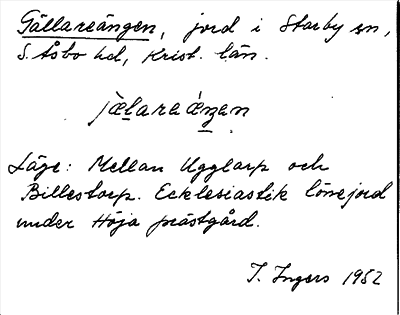 Gällareängen, jord i Starby sn,
S. Åsbo hd, Krist. län.
jæ̲lara ǽŋ̲an
Läge: Mellan Ugglarp och
Billestorp. Ecklesiastik lönejord
under Höja prästgård.
I. Ingers 1952